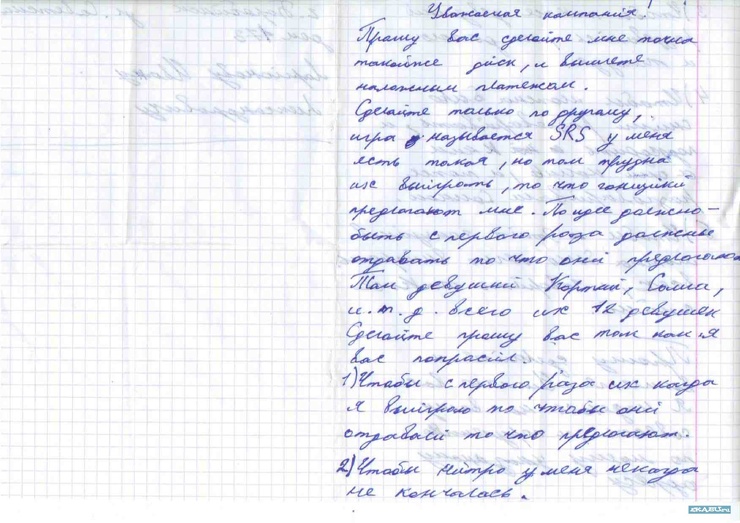 Уважаемая компания!
Прошу вас сделайте мне точна
такойже диск, и вышлете
наложным платежом.
Сделайте только по другому,
игра называется SRS у меня
есть такая, но там трудна
их выиграть, то что гонщики
предлогают мне. По идее должно-
быть с первого раза должны
отдавать то что они предлогают
Там девушки Кортни, Солли,
и.т.д. всего их 12 девушек
Сделайте прошу вас там как я
вас попрасил.
1) Чтобы с первого раза их когда
я выиграю то чтобы они
отдавали то что предлогают.
2) Чтобы нитро у меня некогда
не кончалась.